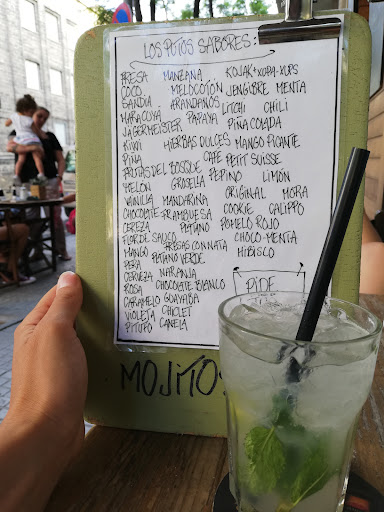 LOS PUTOS SABORES:
FRESA MANZANA KOJAK+XUPA-XUPS
COCO MELOCOTÓN JENGIBRE MENTA
SANDIA ARANDANOS LITCHI CHILI
MARACUYA PAPAYA PIÑA COLADA
JAGERMEISTER
KIWI HIERBAS DULCES MANGO PICANTE
PIÑA CAFE PETIT SUISSE
FRUTAS DEL BOSQUE PEPINO LIMÓN
MELON GROSELLA ORIGINAL MORA
VAINILLA MANDARINA COOKIE CALIPPO
CHOCOLATE FRAMBUESA POMELO ROJO
CEREZA PLATANO CHOCO-MENTA
FLOR DE SAUCO FRESAS CON NATA HIBISCO
MANGO PLATANO VERDE
PERA
CERVEZA NARANJA
ROSA CHOCOLATE BLANCO
CARAMELO GUAYABA
VIOLETA CHICLET
PITUFO CANELA
PIDE
MOJITOS